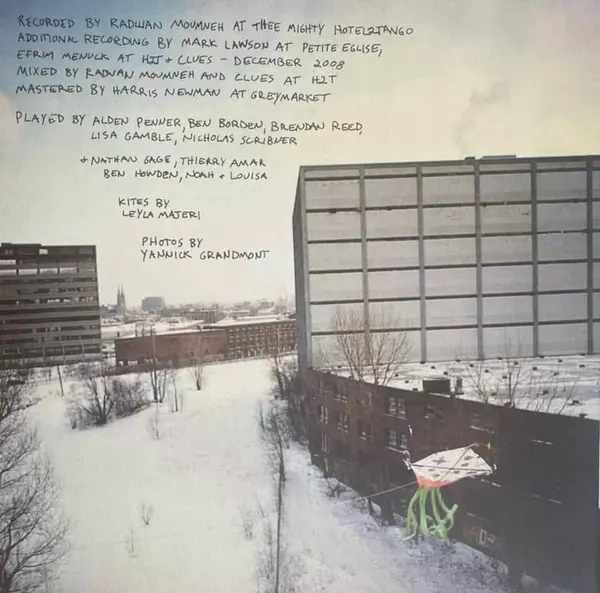 RECORDED BY RADWAN MOUMNEH AT THEE MIGHTY HOTEL2TANGO
ADDITIONAL RECORDING BY MARK LAWSON AT PETITE EGLISE,
EFRIM MENUCK AT H2T + CLUES – DECEMBER 2008
MIXED BY RADWAN MOUMNEH AND CLUES AT H2T
MASTERED BY HARRIS NEWMAN AT GREYMARKET
PLAYED BY ALDEN PENNER, BEN BORDEN, BRENDAN REED,
LISA GAMBLE, NICHOLAS SCRIBNER
+ NATHAN GAGE, THIERRY AMAR
BEN HOWDEN, NOAH + LOUISA
KITES BY
LEYLA MAJERI
PHOTOS BY
YANNICK GRANDMONT